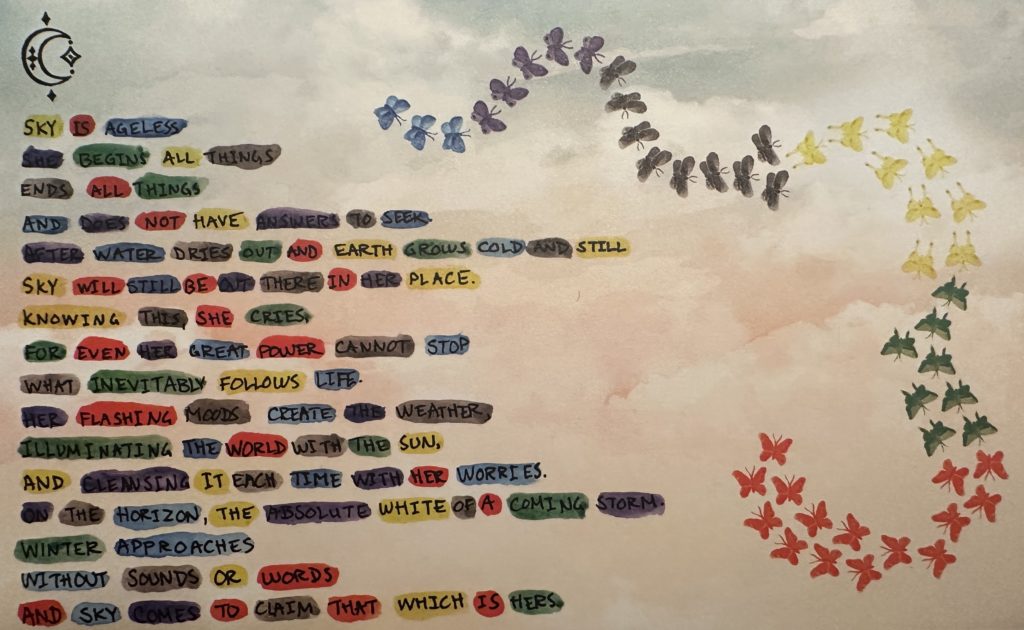 SKY IS AGELESS
SHE BEGINS ALL THINGS
ENDS ALL THINGS
AND DOES NOT HAVE ANSWERS TO SEEK.
AFTER WATER DRIES OUT AND EARTH GROWS COLD AND STILL
SKY WILL STILL BE OUT THERE IN HER PLACE.
KNOWING THIS, SHE CRIES,
FOR EVEN HER GREAT POWER CANNOT STOP
WHAT INEVITABLY FOLLOWS LIFE.
HER FLASHING MOODS CREATE THE WEATHER,
ILLUMINATING THE WORLD WITH THE SUN,
AND CLEANSING IT EACH TIME WITH HER WORRIES.
ON THE HORIZON, THE ABSOLUTE WHITE OF A COMING STORM.
WINTER APPROACHES
WITHOUT SOUNDS OR WORDS
AND SKY COMES TO CLAIM THAT WHICH IS HERS.